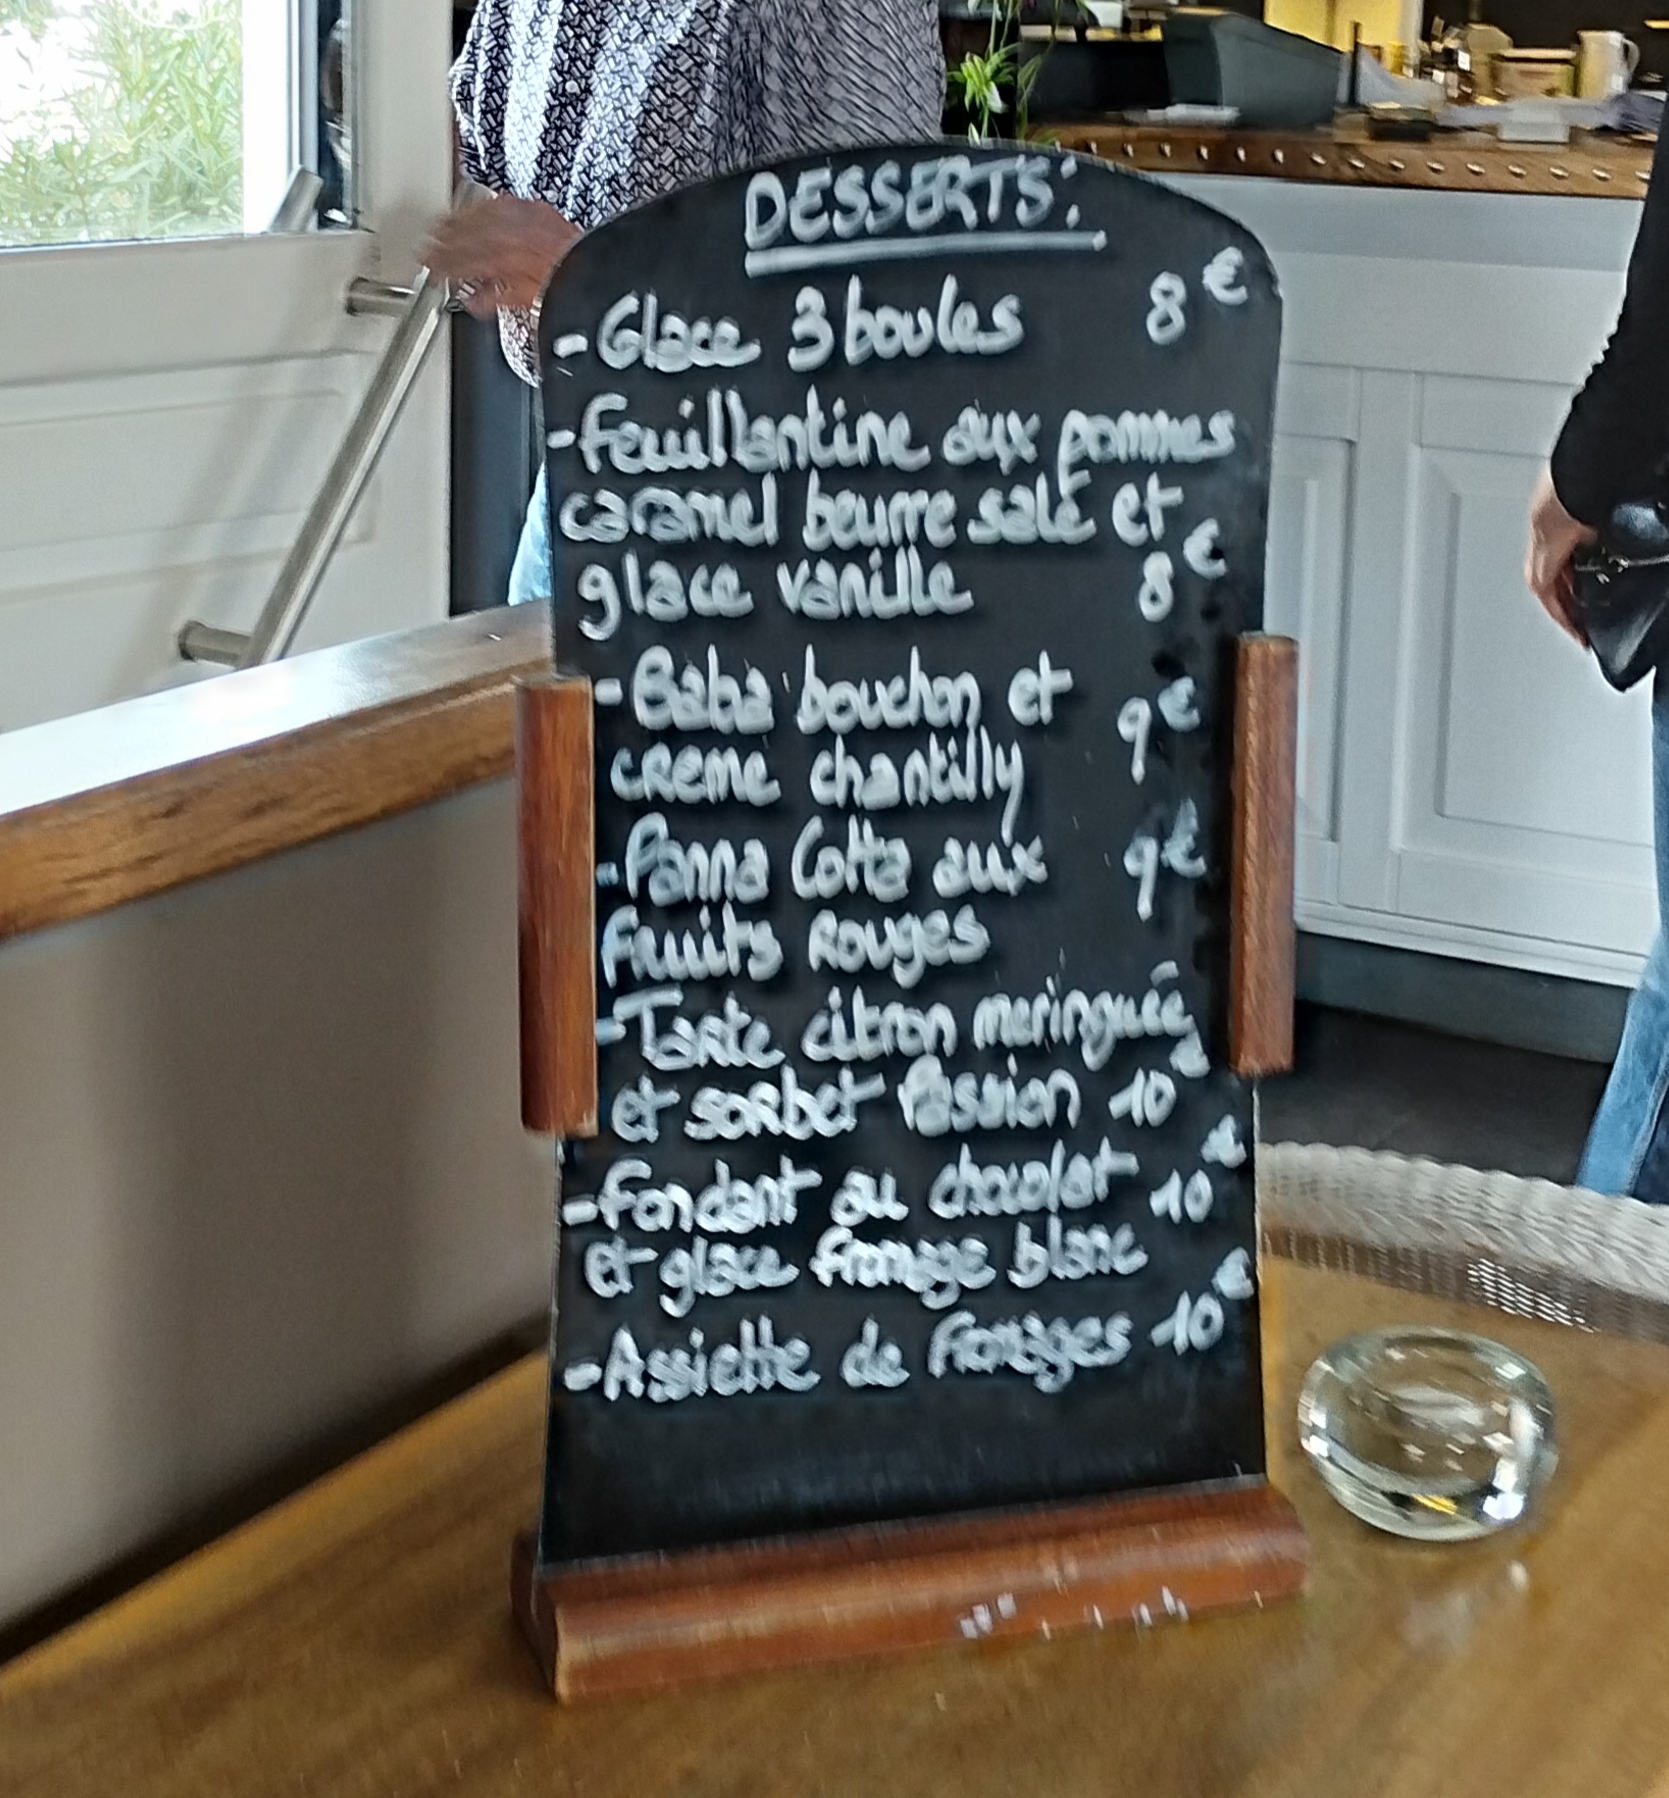 DESSERTS:
- Glace 3 boules 8€
- Feuillantine aux pommes
caramel beurre salé et
glace vanille 8€
- Baba bouchon et 9€
creme chantilly
- Panna Cotta aux 9€
fruits Rouges
- Tarte citron meringuée
et sorbet Passion 10€
- Fondant au chocolat 10€
et glace fromage blanc
- Assiette de Fromages 10€